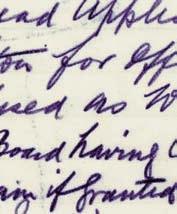 ead Applic
for Off
used as W
Board having
aim if granted